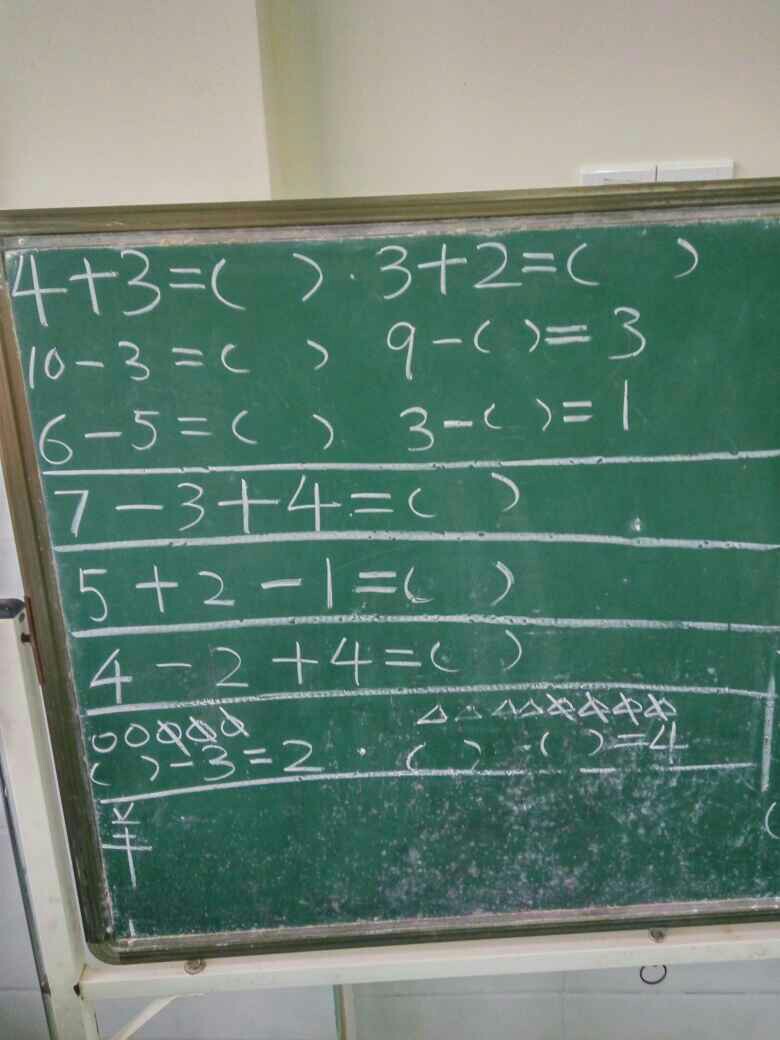 4+3=( ) · 3+2=( )
10-3=( ) 9-( )=3
6-5=( ) 3-( )=1
7-3+4=( )
5+2-1=( )
4-2+4=( )
( )-3=2 · ( )-( )=4
羊